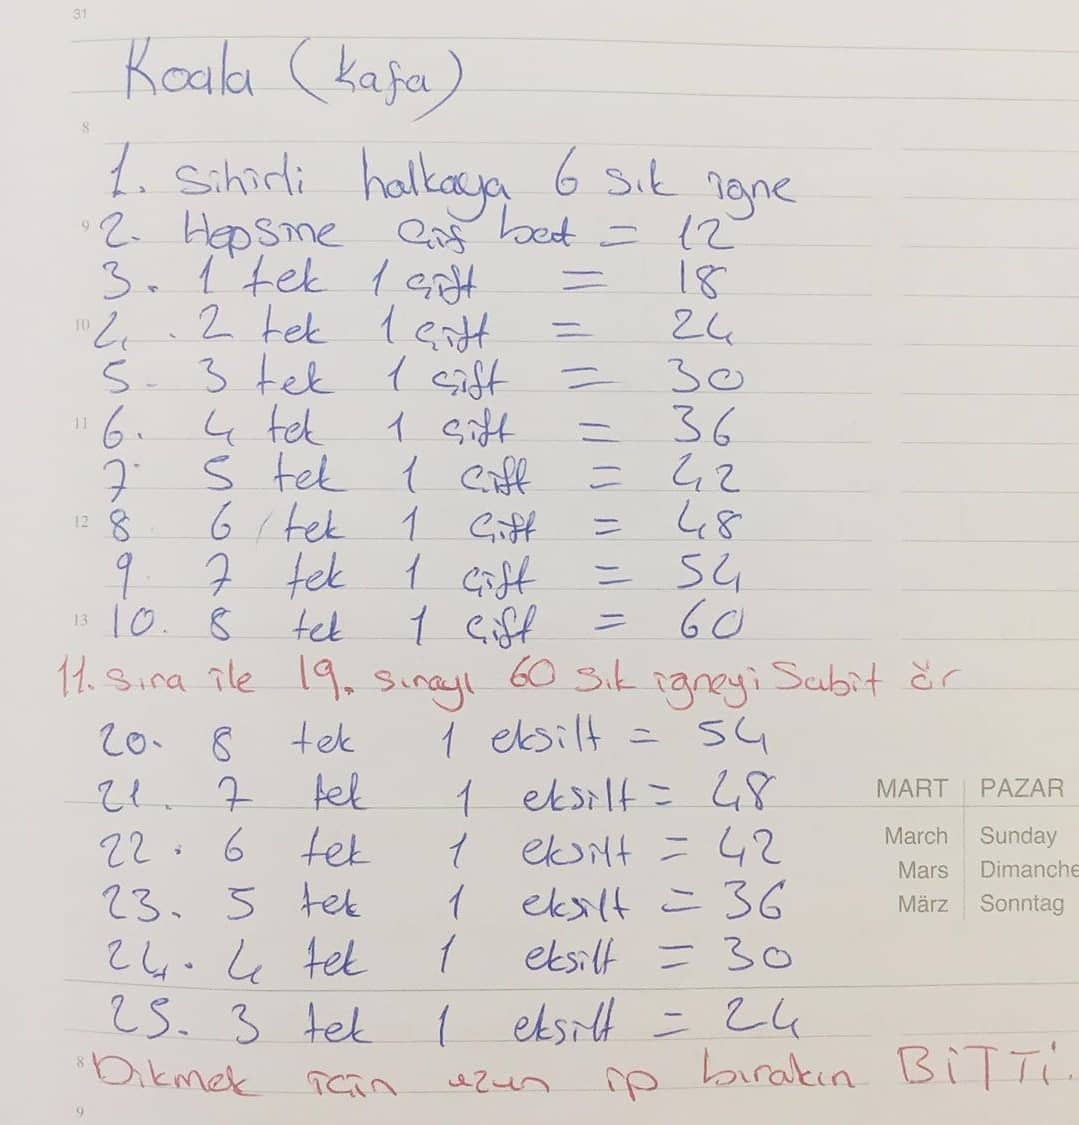 31
Koala (Kafa)
8
1. Sihirli halkaya 6 sık iğne
9 2. Hepsine Çift bat = 12
3. 1 tek 1 çift = 18
10 4. 2 tek 1 çift = 24
5- 3 tek 1 çift = 30
11 6. 4 tek 1 çift = 36
7. 5 tek 1 çift = 42
12 8 6 tek 1 çift = 48
9. 7 tek 1 çift = 54
13 10. 8 tek 1 çift = 60
11. sıra ile 19. sırayı 60 sık iğneyi Sabit ör
20. 8 tek 1 eksilt = 54
21. 7 tek 1 eksilt = 48
MART PAZAR
22. 6 tek 1 eksilt = 42
March Sunday
Mars Dimanche
23. 5 tek 1 eksilt = 36
März Sonntag
24. 4 tek 1 eksilt = 30
25. 3 tek 1 eksilt = 24
8 Dikmek için uzun ip bırakın BİTTİ.
9